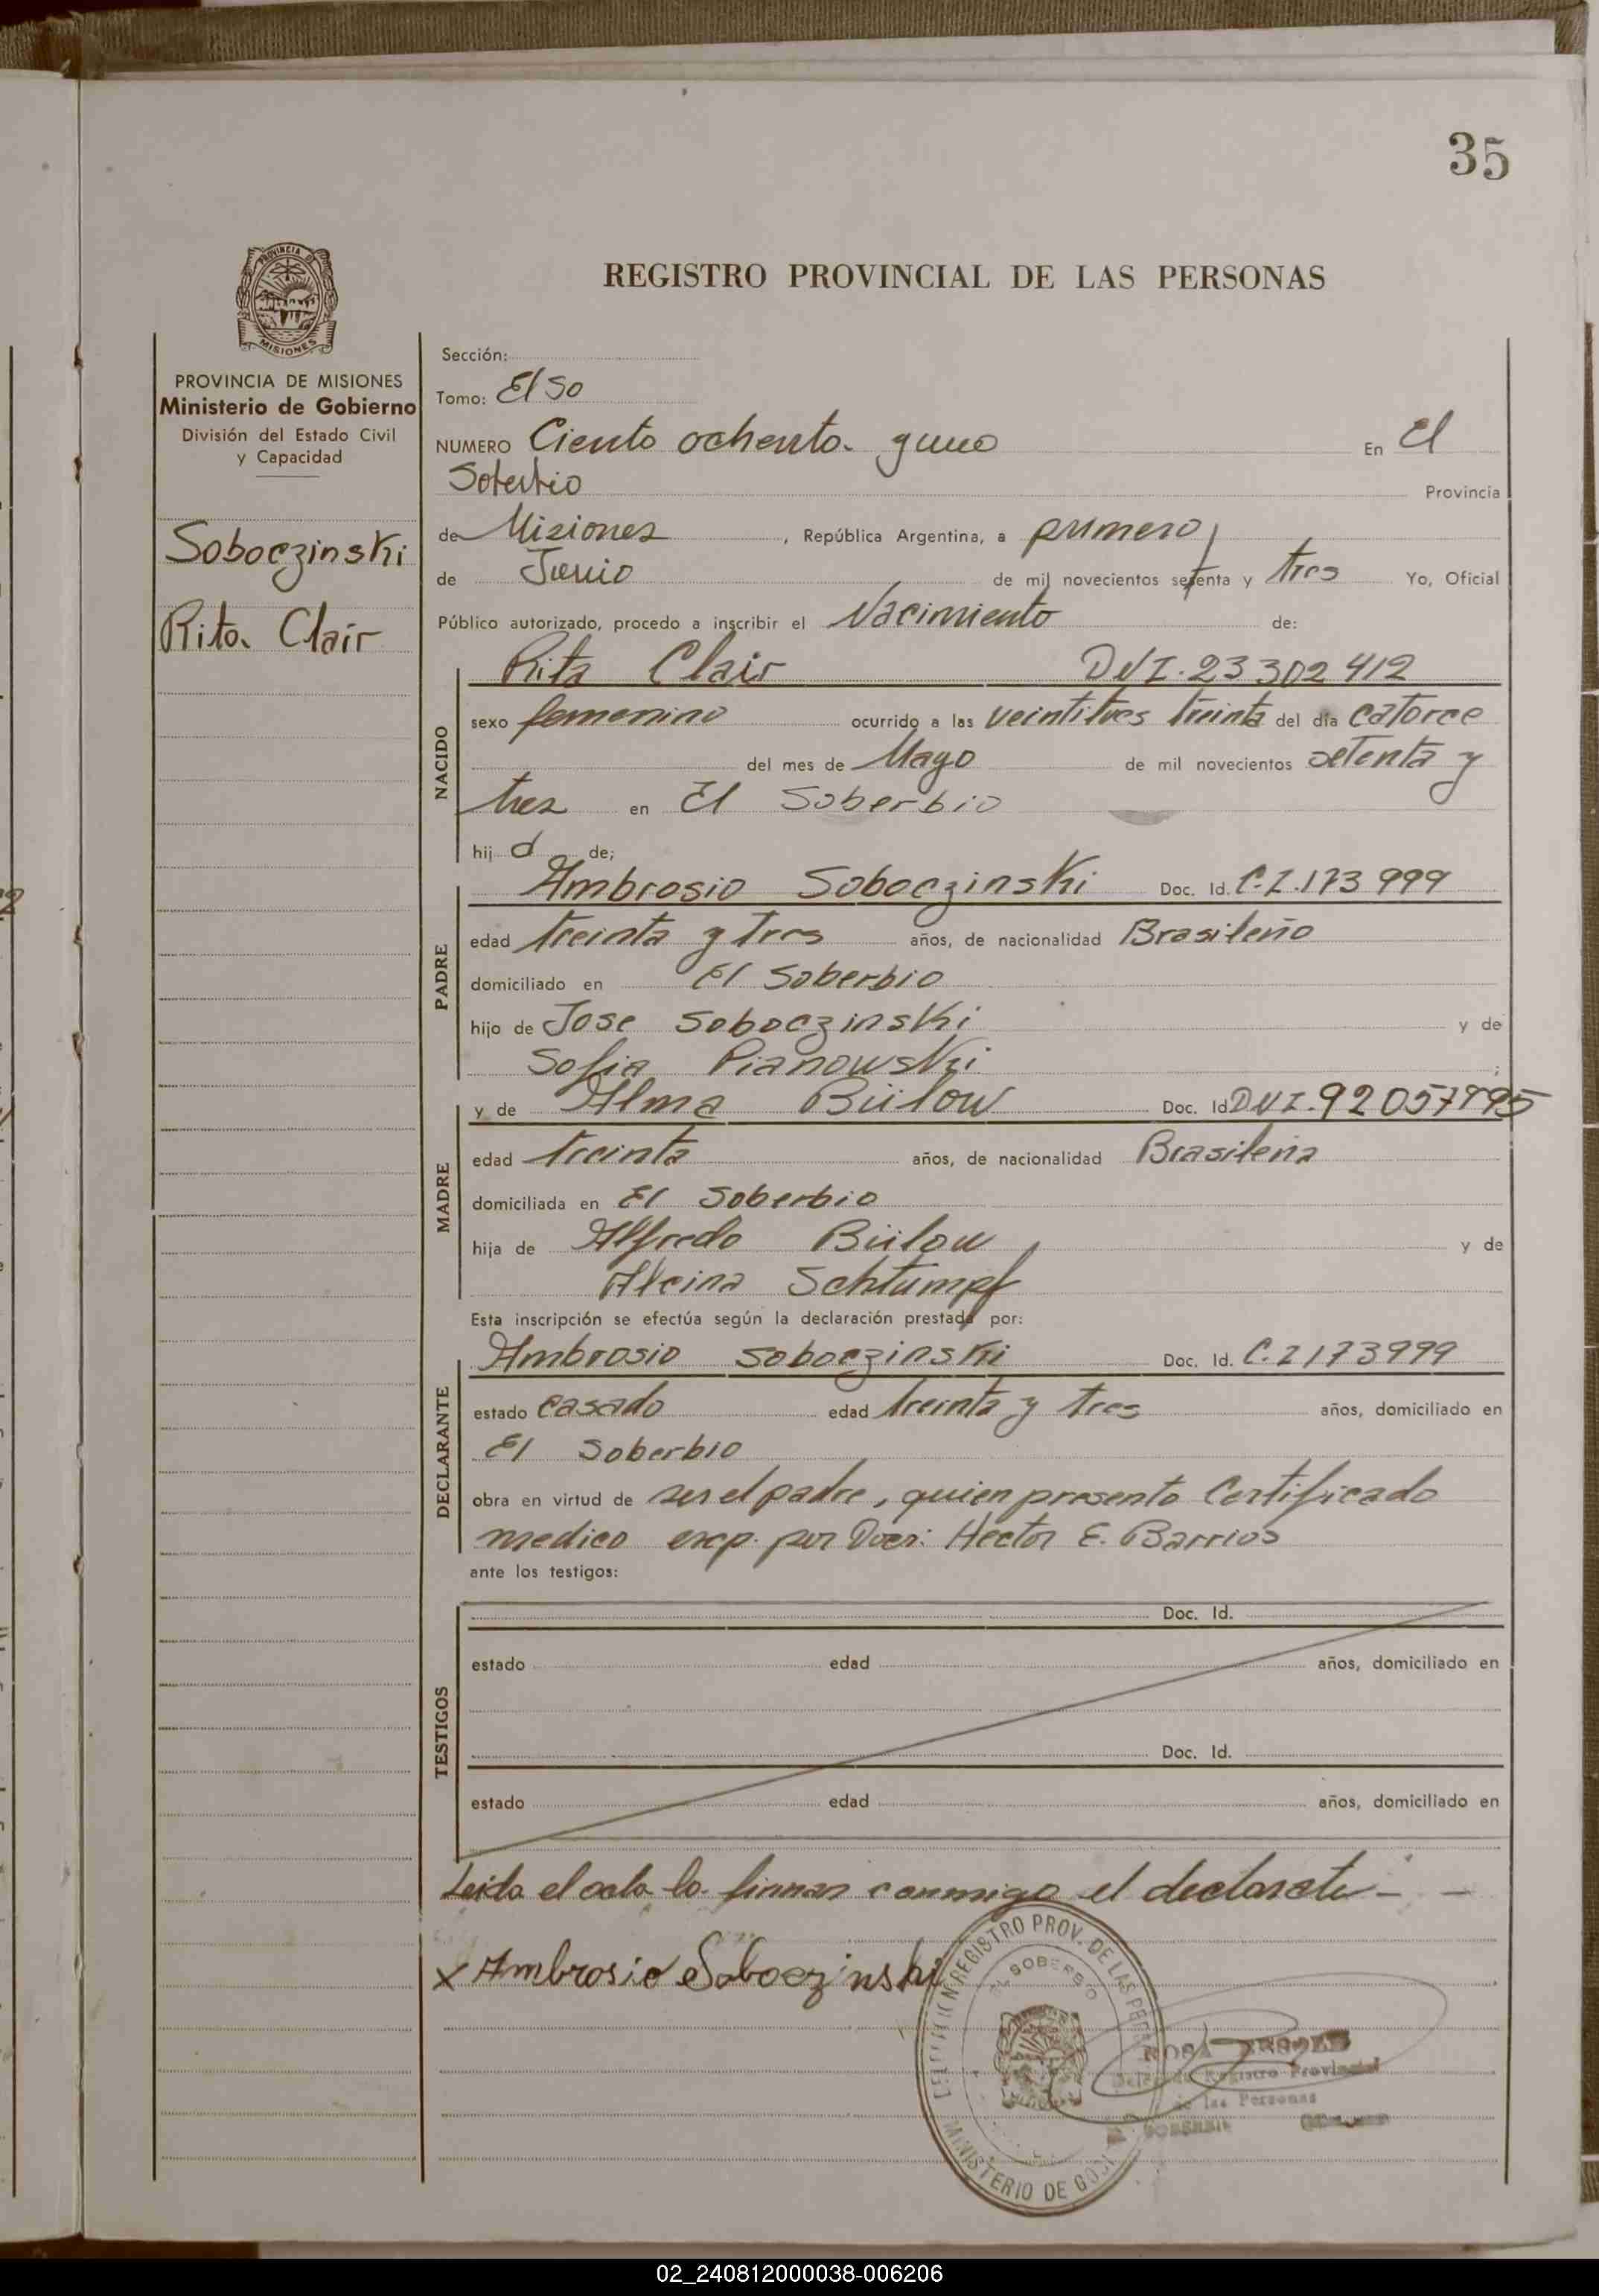 35
PROVINCIA DE
MISIONES
REGISTRO PROVINCIAL DE LAS PERSONAS
PROVINCIA DE MISIONES
Ministerio de Gobierno
División del Estado Civil
y Capacidad
Soboczinski
Rita Clair
Sección:
Tomo: El So
NUMERO Ciento ochenta y uno En El
Soberbio Provincia
de Misiones, República Argentina, a primero
de Junio de mil novecientos setenta y tres Yo, Oficial
Público autorizado, procedo a inscribir el Nacimiento de:
Rita Clair DNI. 23302412
NACIDO
sexo femenino ocurrido a las veintitres treinta del día catorce
del mes de Mayo de mil novecientos setenta y
tres en El Soberbio
hij a de;
PADRE
Ambrosio Soboczinski Doc. Id. C.I. 173999
edad treinta y tres años, de nacionalidad Brasileño
domiciliado en El Soberbio
hijo de Jose Soboczinski y de
Sofia Pianowski ;
MADRE
y de Alma Bülow Doc. Id DNI. 92057995
edad treinta años, de nacionalidad Brasileña
domiciliada en El Soberbio
hija de Alfredo Bülow y de
Alcina Schtumpf
Esta inscripción se efectúa según la declaración prestada por:
DECLARANTE
Ambrosio Soboczinski Doc. Id. C.I 173999
estado casado edad treinta y tres años, domiciliado en
El Soberbio
obra en virtud de ser el padre, quien presento Certificado
medico exp. por Hector E. Barrios
ante los testigos:
TESTIGOS
Doc. Id.
estado edad años, domiciliado en
Doc. Id.
estado edad años, domiciliado en
Leida el acta la firman conmigo el declarate - -
x Ambrosio Soboczinski
REGISTRO PROV. DE LAS
EL SOBERBIO
MINISTERIO DE
ROSA
Registro Provincial
de las Personas
02_240812000038-006206